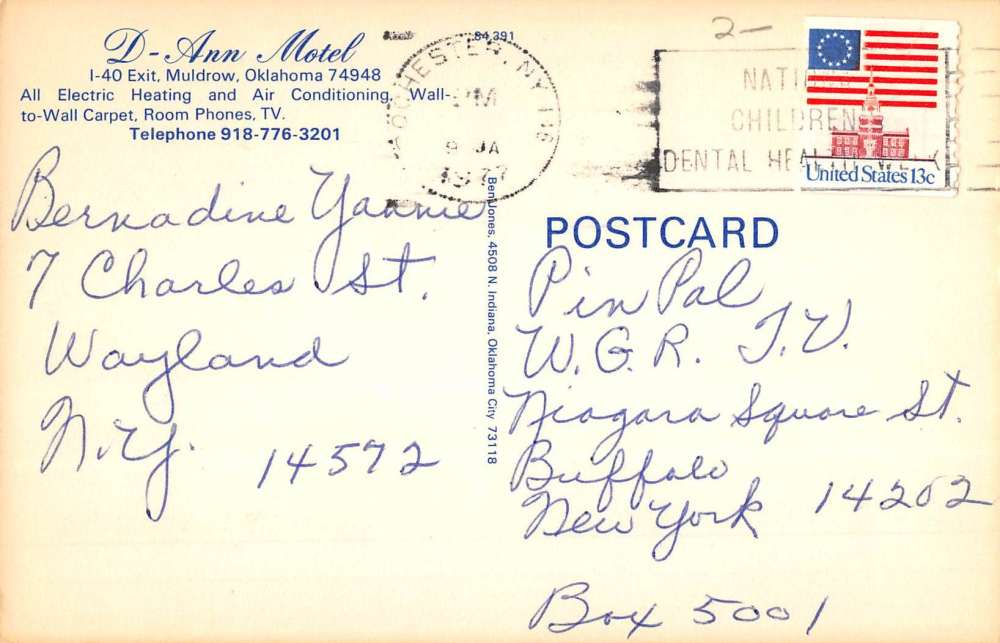 D-Ann Motel
I-40 Exit, Muldrow, Oklahoma 74948
All Electric Heating and Air Conditioning, Wall-
to-Wall Carpet, Room Phones, TV.
Telephone 918-776-3201
84,391
Bernadine Yannie
7 Charles St.
Wayland
N.Y. 14572
Ben Jones, 4508 N. Indiana, Oklahoma City 73118
ROCHESTER, NY 146
PM
9 JA
1977
2-
NATIONAL
CHILDREN
DENTAL HEALTH WEEK
United States 13c
POSTCARD
Pin Pal
W.G.R. T.V.
Niagara Square St.
Buffalo
New York 14202
Box 5001